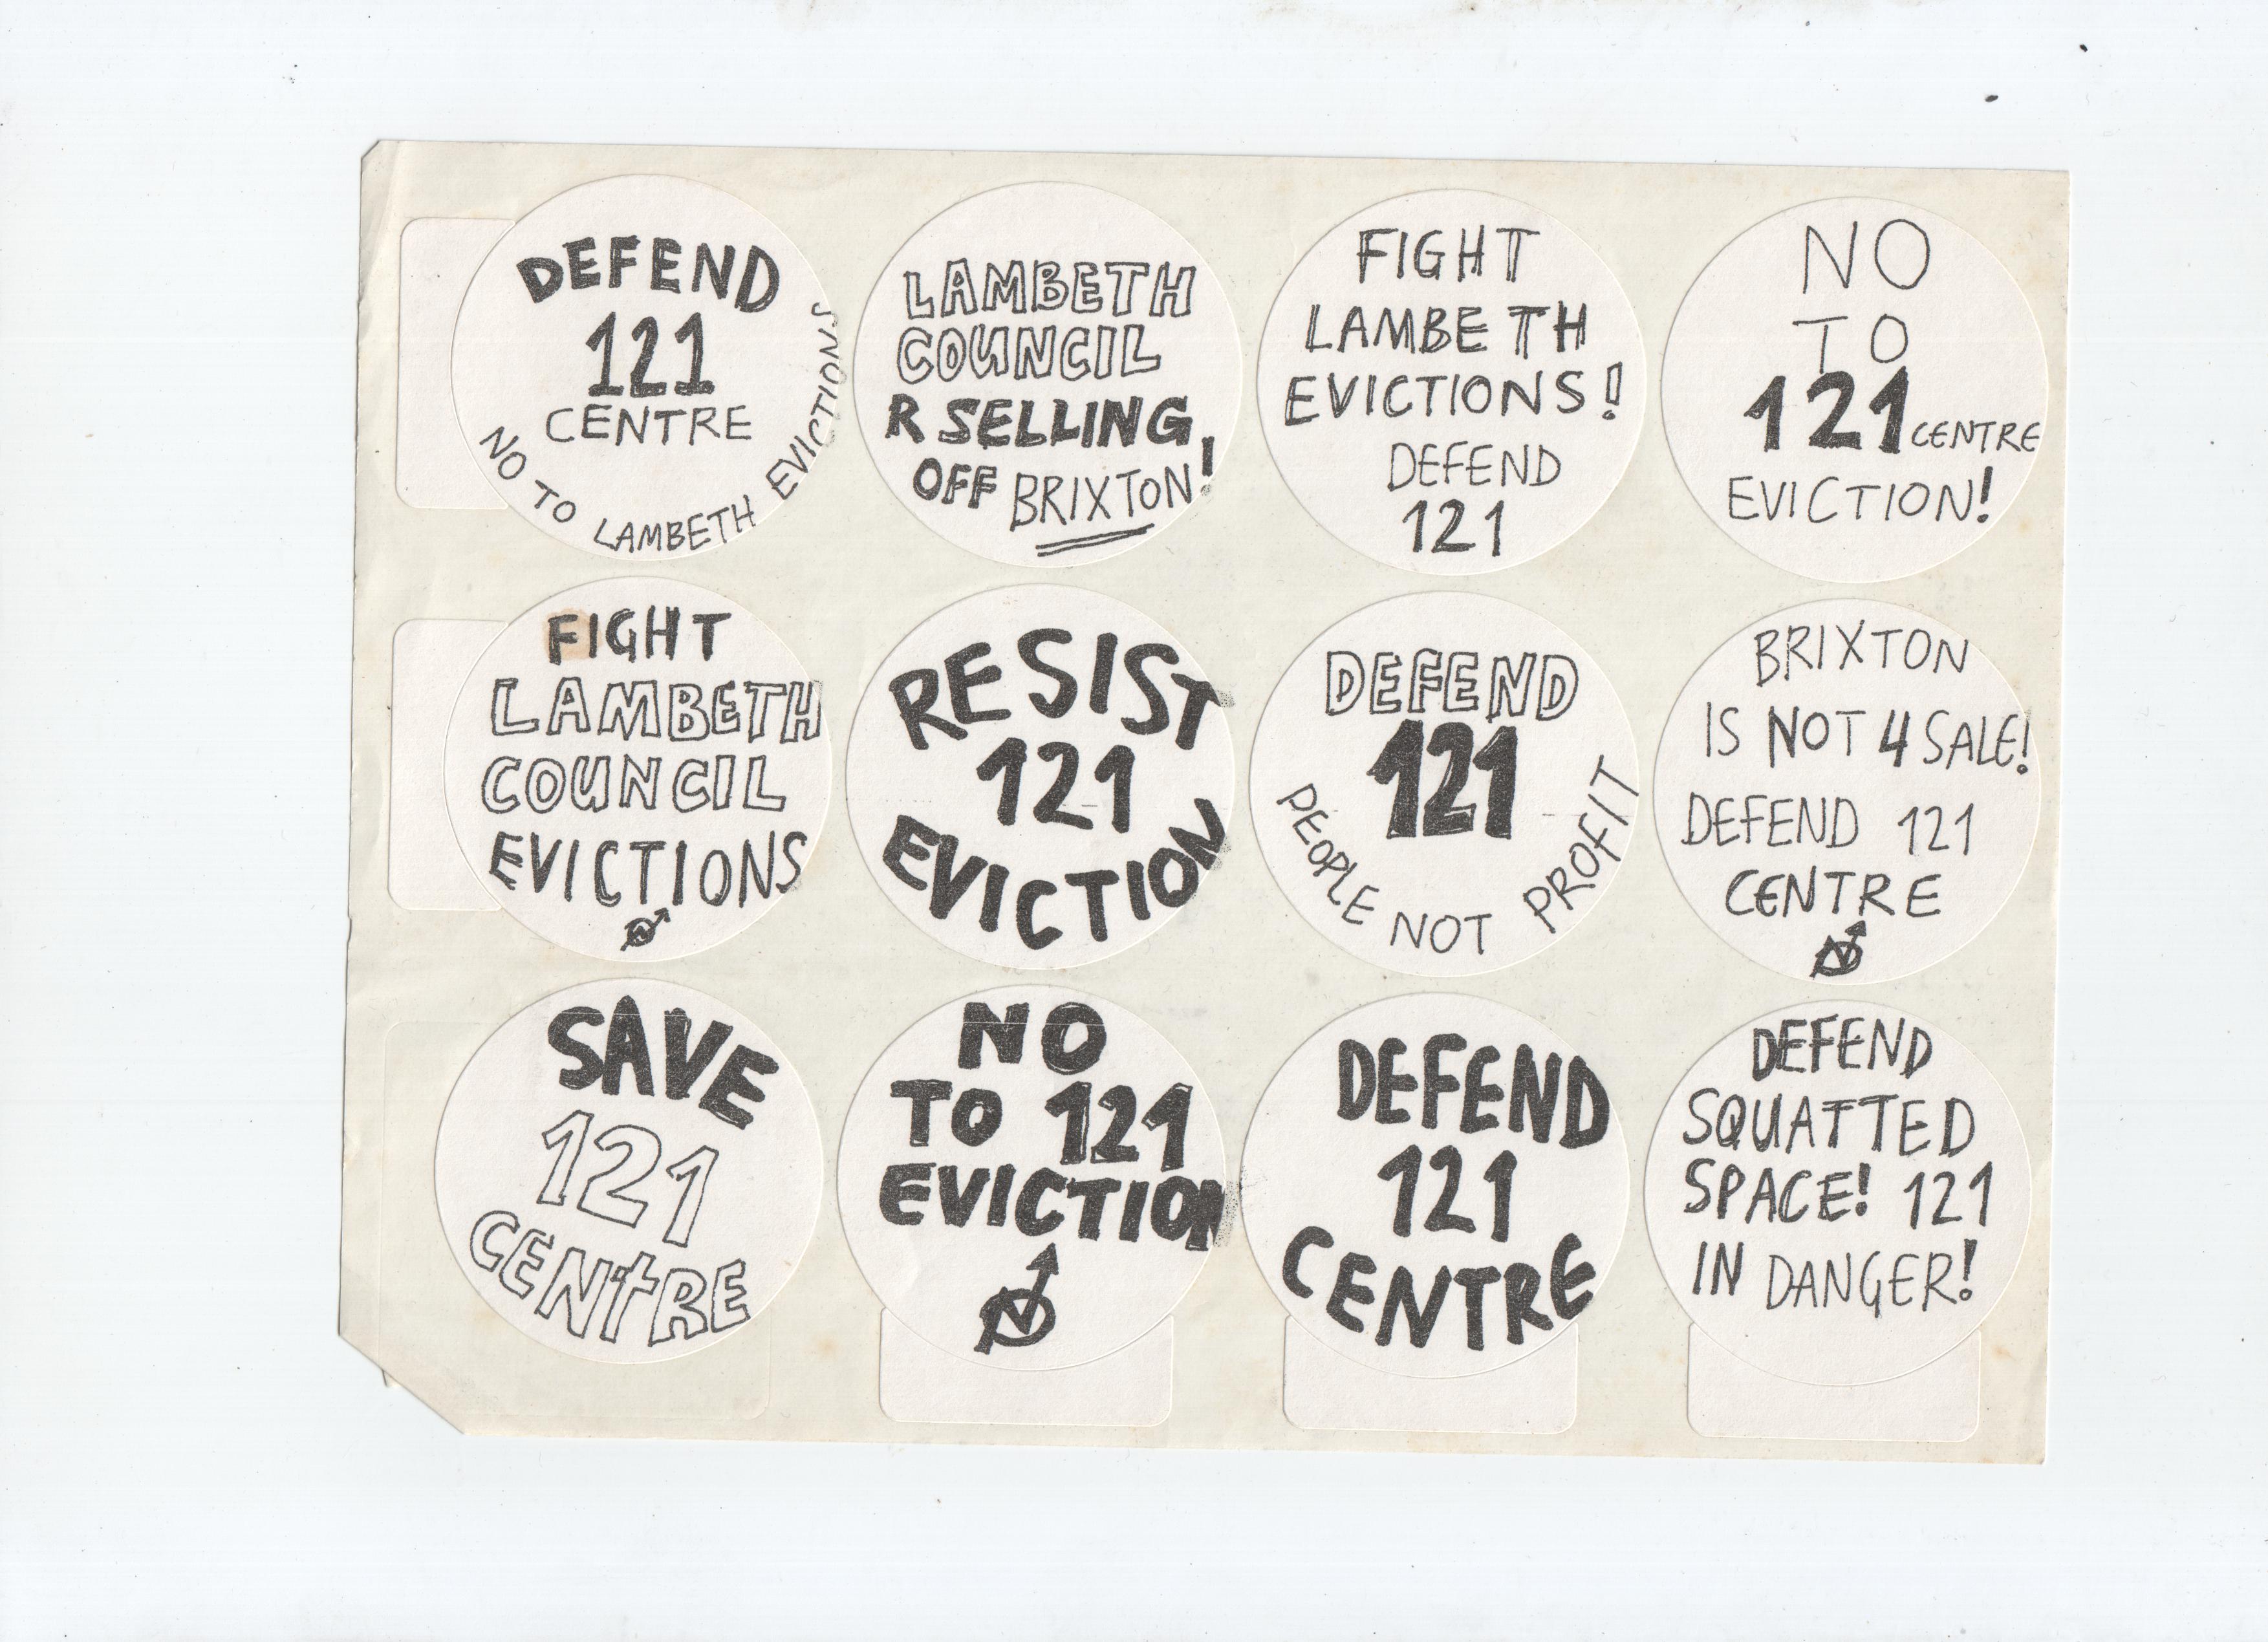 DEFEND
121
CENTRE
NO TO LAMBETH EVICTIONS
LAMBETH
COUNCIL
R SELLING
OFF BRIXTON!
FIGHT
LAMBETH
EVICTIONS!
DEFEND
121
NO
TO
121 CENTRE
EVICTION!
FIGHT
LAMBETH
COUNCIL
EVICTIONS
RESIST
121
EVICTION
DEFEND
121
PEOPLE NOT PROFIT
BRIXTON
IS NOT 4 SALE!
DEFEND 121
CENTRE
SAVE
121
CENTRE
NO
TO 121
EVICTION
DEFEND
121
CENTRE
DEFEND
SQUATTED
SPACE! 121
IN DANGER!